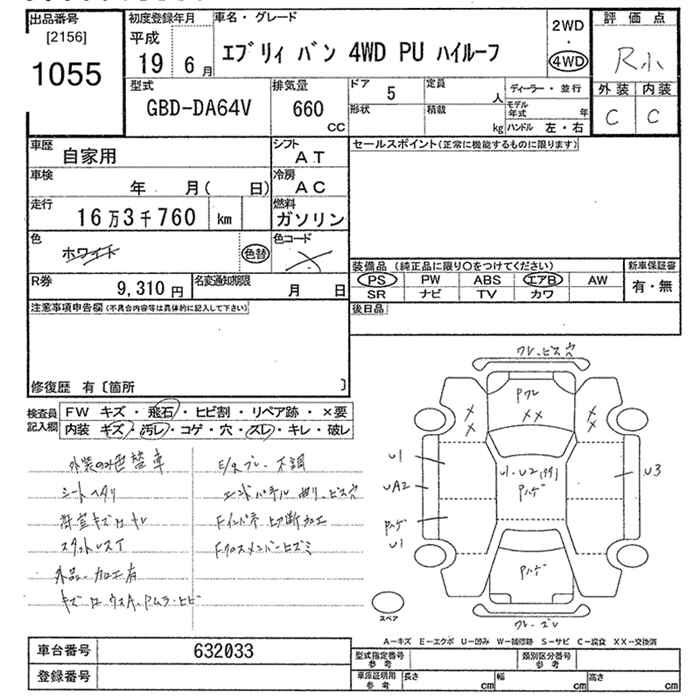 出品番号
[2156]
1055
初度登録年月
平成
19 6月
車名・グレード
エブリィ バン 4WD PU ハイルーフ
2WD
・
4WD
評価点
R小
外装 内装
C C
型式
GBD-DA64V
排気量
660
CC
ドア 5
定員
人
形状
積載
kg
ディーラー・並行
モデル年式
年
ハンドル 左・右
車歴
自家用
シフト
AT
車検
年 月( 日)
冷房
AC
走行
16万3千760 km
燃料
ガソリン
色
ホワイト
色替
色コード
R券
9,310円
名変通知期限
月 日
セールスポイント(正常に機能するものに限ります)
装備品(純正品に限り○をつけてください)
PS PW ABS エアB AW
SR ナビ TV カワ
新車保証書
有・無
後日品
注意事項申告欄(不具合内容等は具体的に記入して下さい)
修復歴 有〔箇所 〕
検査員記入欄
FW キズ・飛石・ヒビ割・リペア跡・×要
内装 キズ・汚レ・コゲ・穴・スレ・キレ・破レ
外装の色替車
シートヘタリ
スタットレスT
外品、加工有
E/gブレ、不調
エンドパネル曲り、ビス穴
Fインパネ上切断加工
Fクロスメンバーヒズミ
ワレ、ビス穴
Pワレ
XX
X
X
X
X
U1
UA2
Pハゲ
U1
U1・U2(99)
Pハゲ
U3
Pハゲ
ワレ・ズレ
スペア
A-キズ E-エクボ U-凹み W-補修跡 S-サビ C-腐食 XX-交換済
車台番号
632033
登録番号
型式指定番号
参考
類別区分番号
参考
車庫証明用
参考
長さ cm
幅 cm
高さ cm